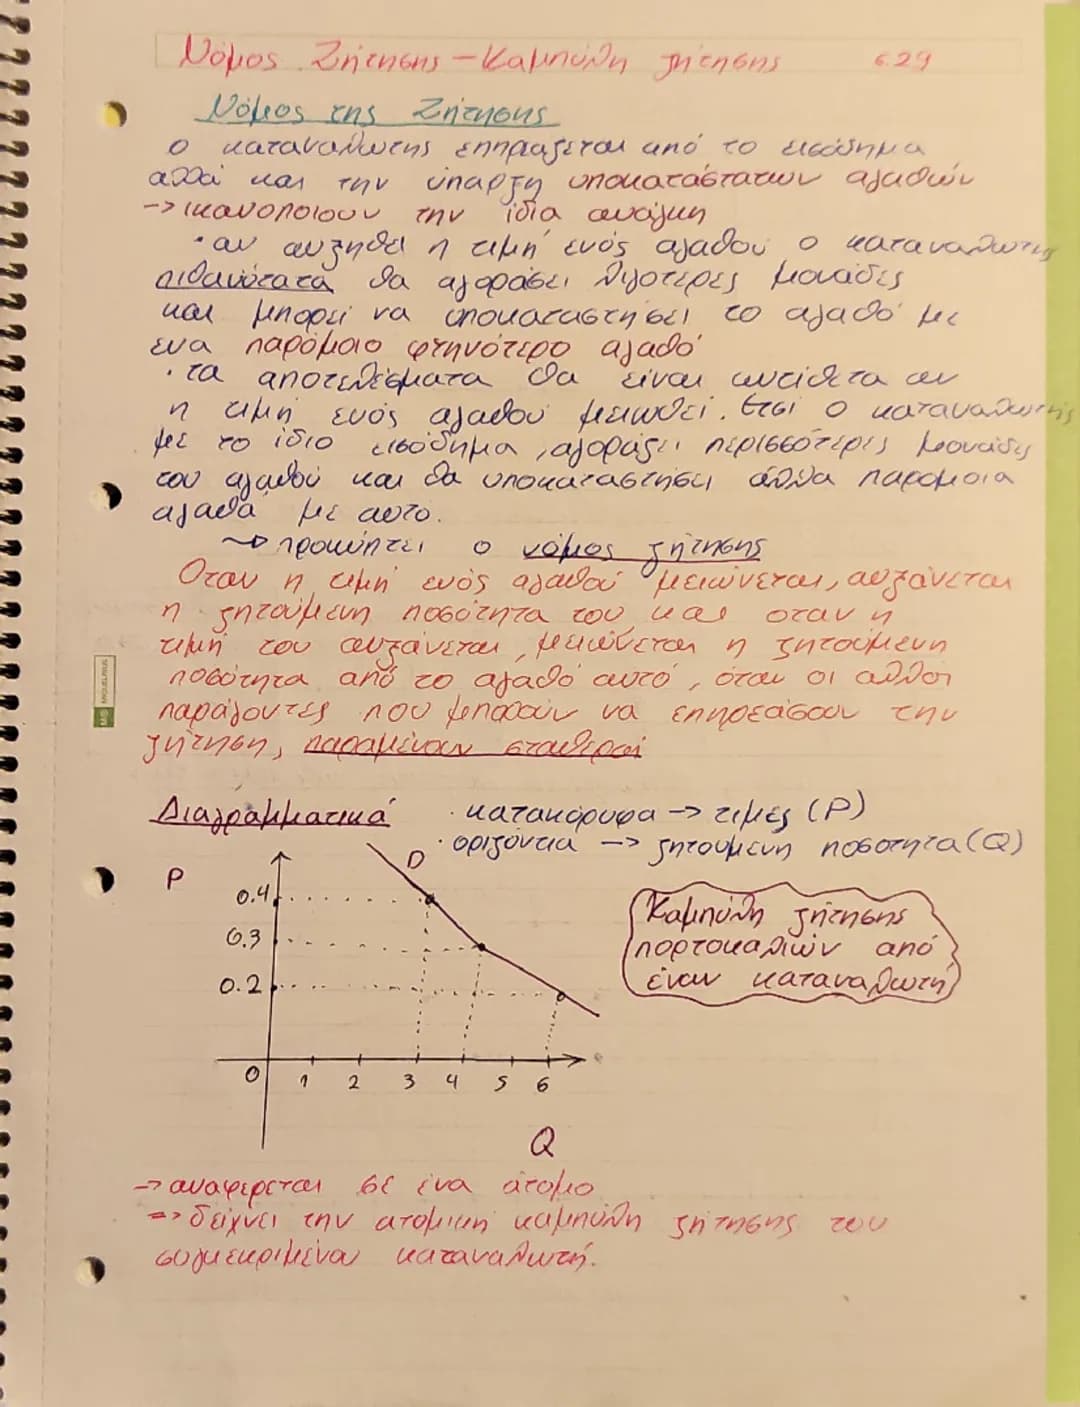 Νόμος Ζήτησης – Καμπύλη ζήτησης σ.29
Νόμος της Ζήτησης
Ο καταναλωτής επηρεάζεται από το εισόδημα
αλλά και την ύπαρξη υποκατάστατων αγαθών
-> ικανοποιούν την ίδια ανάγκη
• αν αυξηθεί η τιμή ενός αγαθού ο καταναλωτής
πιθανότατα θα αγοράσει λιγότερες μονάδες
και μπορεί να υποκαταστήσει το αγαθό με
ένα παρόμοιο φτηνότερο αγαθό
• τα αποτελέσματα θα είναι αντίθετα αν
η τιμή ενός αγαθού μειωθεί. Έτσι ο καταναλωτής
με το ίδιο εισόδημα, αγοράζει περισσότερες μονάδες
του αγαθού και θα υποκαταστήσει άλλα παρόμοια
αγαθά με αυτό.
-> προκύπτει ο νόμος ζήτησης
Όταν η τιμή ενός αγαθού μειώνεται, αυξάνεται
η ζητούμενη ποσότητα του και όταν η
τιμή του αυξάνεται, μειώνεται η ζητούμενη
ποσότητα από το αγαθό αυτό, όταν οι άλλοι
παράγοντες που μπορούν να επηρεάσουν την
ζήτηση, παραμένουν σταθεροί
MS MIQUELRIUS
Διαγραμματικά • κατακόρυφα -> τιμές (P)
• οριζόντια -> ζητούμενη ποσότητα (Q)
P D
0.4
0.3
0.2
0 1 2 3 4 5 6
Q
Καμπύλη ζήτησης
πορτοκαλιών από
έναν καταναλωτή
-> αναφέρεται σε ένα άτομο
=> δείχνει την ατομική καμπύλη ζήτησης του
συγκεκριμένου καταναλωτή.